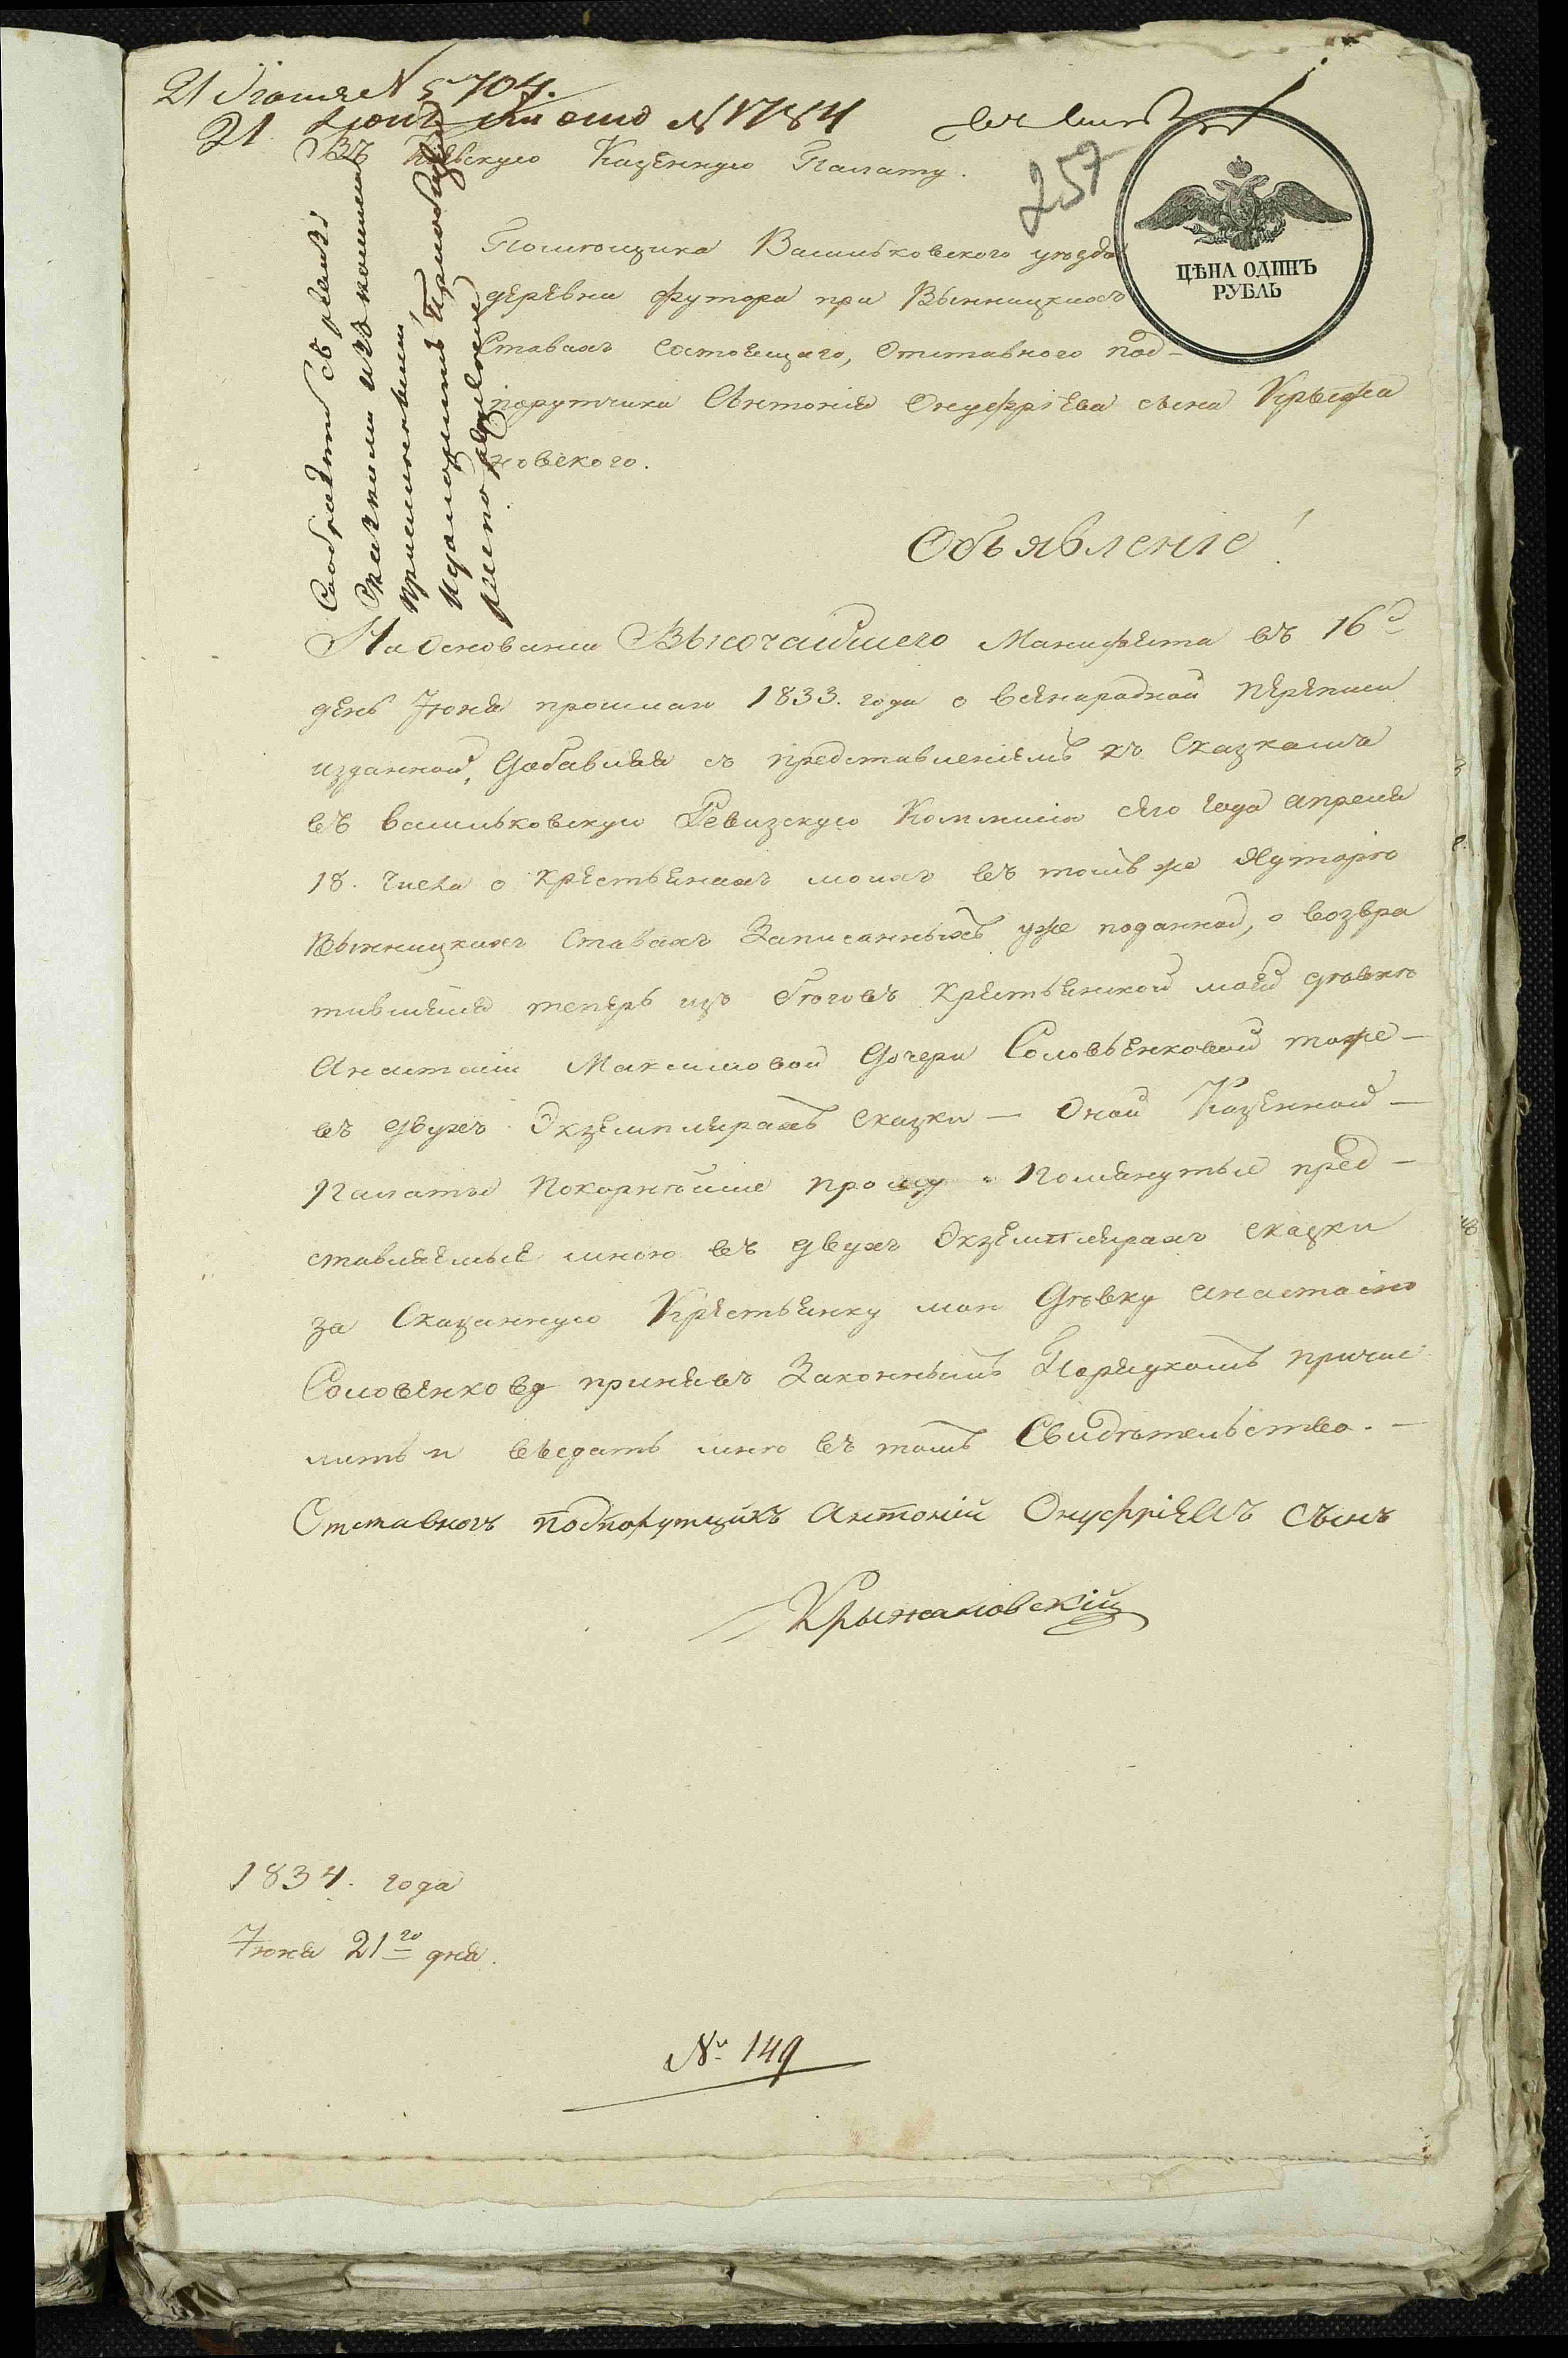 21 Июня № 5704.
21 Июня № 1784
257
ЦѢНА ОДИНЪ
РУБЛЬ
Въ Кіевскую Казенную Палату.
Помѣщика Васильковского уѣзда
деревни Футора при Вынницкихъ
Ставахъ состоящаго, Отставного под-
порутчика Антонія Онуфріева сына Крыжа
новского.
Сообразить съ ревиз:
Сказками и по
Объявленіе!
На Основании Высочайшего Манифеста въ 16й
день Іюня прошлаго 1833. года о всенародной переписи
изданной, Добавляя съ представленіемъ къ Сказкамъ
въ васильковскую Ревизскую Коммисію сего года апреля
18. числа о крестьянахъ моихъ въ томъ же Хуторѣ
Вынницкихъ Ставахъ Записанныхъ уже поданной, о возвра
тившейся теперь изъ бѣговъ крестьянской моей девкѣ
Анастасіи Максимовой Дочери Соловьенковой тоже —
въ двухъ Экземплярахъ сказки — Оной Казенной —
Палаты Покорнѣйше прошу Помянутые пред —
ставляемые мною въ двухъ Экземплярахъ сказки
за Сказанную Крестьянку мою Дѣвку анастасію
Соловенкову принявъ Законнымъ Порядкомъ причис
лить и выдать мнѣ въ томъ Свидѣтельство. —
Отставногъ подпорутщикъ Антоній Онуфріевъ сынъ
Крыжановскій
1834. года
Іюня 21го дня.
№ 149